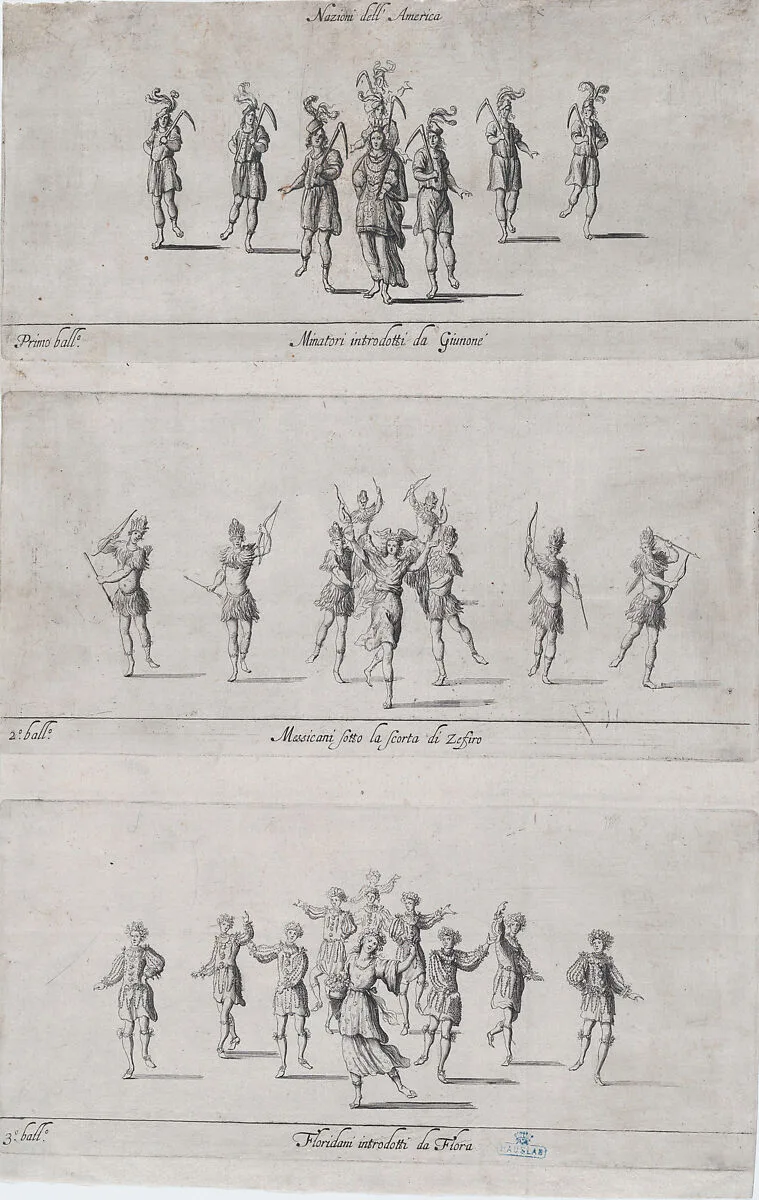 Nazioni dell' America
Primo ball.º
Minatori introdotti da Giunone
2.º ball.º
Messicani sotto la scorta di Zefiro
3.º ball.º
Floridani introdotti da Flora
HAUSLAB